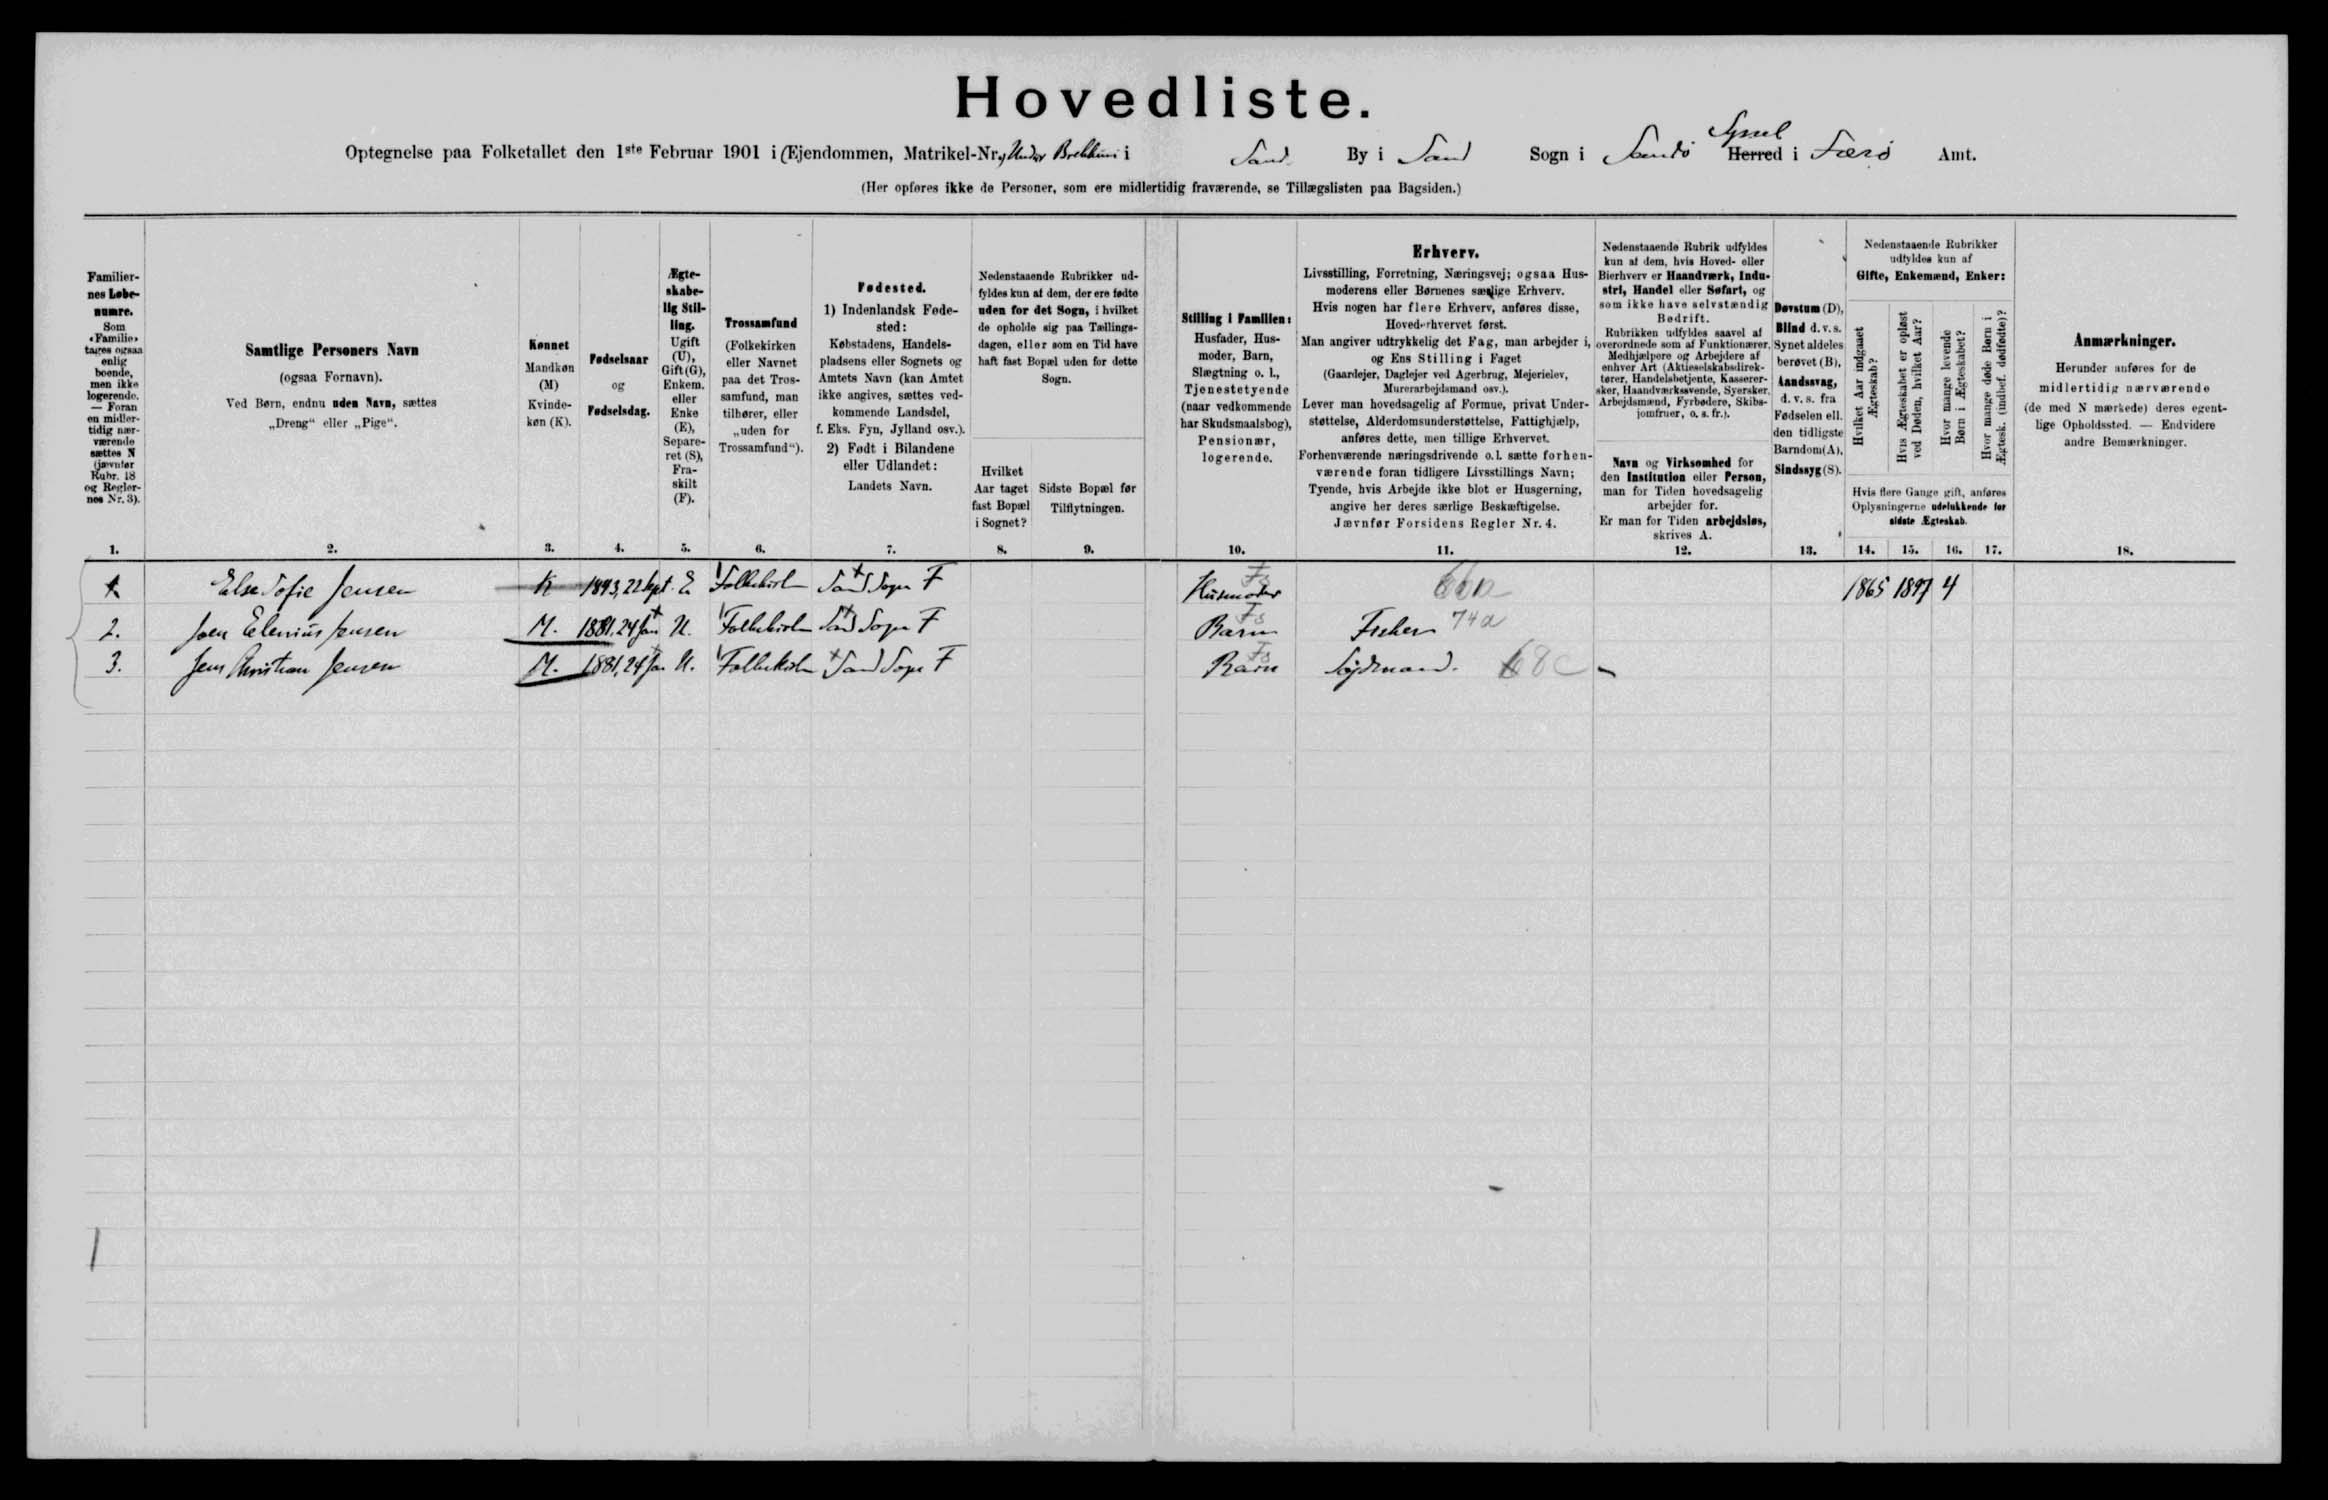 Hovedliste.
Syssel
Optegnelse paa Folketallet den 1ste Februar 1901 i (Ejendommen, Matrikel-Nr.) Under Brekkuni i Sand By i Sand Sogn i Sandø Herred i Færø Amt.
(Her opføres ikke de Personer, som ere midlertidig fraværende, se Tillægslisten paa Bagsiden.)
Familier-
nes Løbe-
numre.
Som
«Familie»
tages ogsaa
enlig
boende,
men ikke
logerende.
— Foran
en midler-
tidig nær-
værende
sættes N
(jævnfør
Rubr. 18
og Regler-
nes Nr. 3).
1.
Samtlige Personers Navn
(ogsaa Fornavn).
Ved Børn, endnu uden Navn, sættes
„Dreng“ eller „Pige“.
2.
Kønnet
Mandkøn
(M)
Kvinde-
køn (K).
3.
Fødselsaar
og
Fødselsdag.
4.
Ægte-
skabe-
lig Stil-
ling.
Ugift
(U),
Gift (G),
Enkem.
eller
Enke
(E),
Separe-
ret (S),
Fra-
skilt
(F).
5.
Trossamfund
(Folkekirken
eller Navnet
paa det Tros-
samfund, man
tilhører, eller
„uden for
Trossamfund“).
6.
Fødested.
1) Indenlandsk Føde-
sted:
Købstadens, Handels-
pladsens eller Sognets og
Amtets Navn (kan Amtet
ikke angives, sættes ved-
kommende Landsdel,
f. Eks. Fyn, Jylland osv.).
2) Født i Bilandene
eller Udlandet:
Landets Navn.
7.
Nedenstaaende Rubrikker ud-
fyldes kun af dem, der ere fødte
uden for det Sogn, i hvilket
de opholde sig paa Tællings-
dagen, eller som en Tid have
haft fast Bopæl uden for dette
Sogn.
Hvilket
Aar taget
fast Bopæl
i Sognet?
8.
Sidste Bopæl før
Tilflytningen.
9.
Stilling i Familien:
Husfader, Hus-
moder, Barn,
Slægtning o. l.,
Tjenestetyende
(naar vedkommende
har Skudsmaalsbog),
Pensionær,
logerende.
10.
Erhverv.
Livsstilling, Forretning, Næringsvej; ogsaa Hus-
moderens eller Børnenes særlige Erhverv.
Hvis nogen har flere Erhverv, anføres disse,
Hovederhvervet først.
Man angiver udtrykkelig det Fag, man arbejder i,
og Ens Stilling i Faget
(Gaardejer, Daglejer ved Agerbrug, Mejerielev,
Murerarbejdsmand osv.).
Lever man hovedsagelig af Formue, privat Under-
støttelse, Alderdomsunderstøttelse, Fattighjælp,
anføres dette, men tillige Erhvervet.
Forhenværende næringsdrivende o.l. sætte forhen-
værende foran tidligere Livsstillings Navn;
Tyende, hvis Arbejde ikke blot er Husgerning,
angive her deres særlige Beskæftigelse.
Jævnfør Forsidens Regler Nr. 4.
11.
Nedenstaaende Rubrik udfyldes
kun af dem, hvis Hoved- eller
Bierhverv er Haandværk, Indu-
stri, Handel eller Søfart, og
som ikke have selvstændig
Bedrift.
Rubrikken udfyldes saavel af
overordnede som af Funktionærer,
Medhjælpere og Arbejdere af
enhver Art (Aktieselskabsdirek-
tører, Handelsbetjente, Kasserer-
sker, Haandværkssvende, Syersker,
Arbejdsmænd, Fyrbødere, Skibs-
jomfruer, o. s. fr.).
Navn og Virksomhed for
den Institution eller Person,
man for Tiden hovedsagelig
arbejder for.
Er man for Tiden arbejdsløs,
skrives A.
12.
Døvstum (D),
Blind d. v. s.
Synet aldeles
berøvet (B),
Aandssvag,
d. v. s. fra
Fødselen ell.
den tidligste
Barndom (A),
Sindssyg (S).
13.
Nedenstaaende Rubrikker
udfyldes kun af
Gifte, Enkemænd, Enker:
Hvilket Aar indgaaet
Ægteskab?
Hvis Ægteskabet er opløst
ved Døden, hvilket Aar?
Hvor mange levende
Børn i Ægteskabet?
Hvor mange døde Børn i
Ægtesk. (indbef. dødfødte)?
Hvis flere Gange gift, anføres
Oplysningerne udelukkende for
sidste Ægteskab.
14. 15. 16. 17.
Anmærkninger.
Herunder anføres for de
midlertidig nærværende
(de med N mærkede) deres egent-
lige Opholdssted. — Endvidere
andre Bemærkninger.
18.
1. Else Sofie Jensen K 1843, 22 Sept. E Folkekirken Sand Sogn F Husmoder Fs 66a 1865 1897 4
2. Joen Elenius Jensen M. 1881, 24 Jan U. Folkekirken Sand Sogn F Barn Fs Fisker 74a
3. Jens Christian Jensen M. 1881, 24 Jan U. Folkekirken Sand Sogn F Barn Fs Sømand. 68c